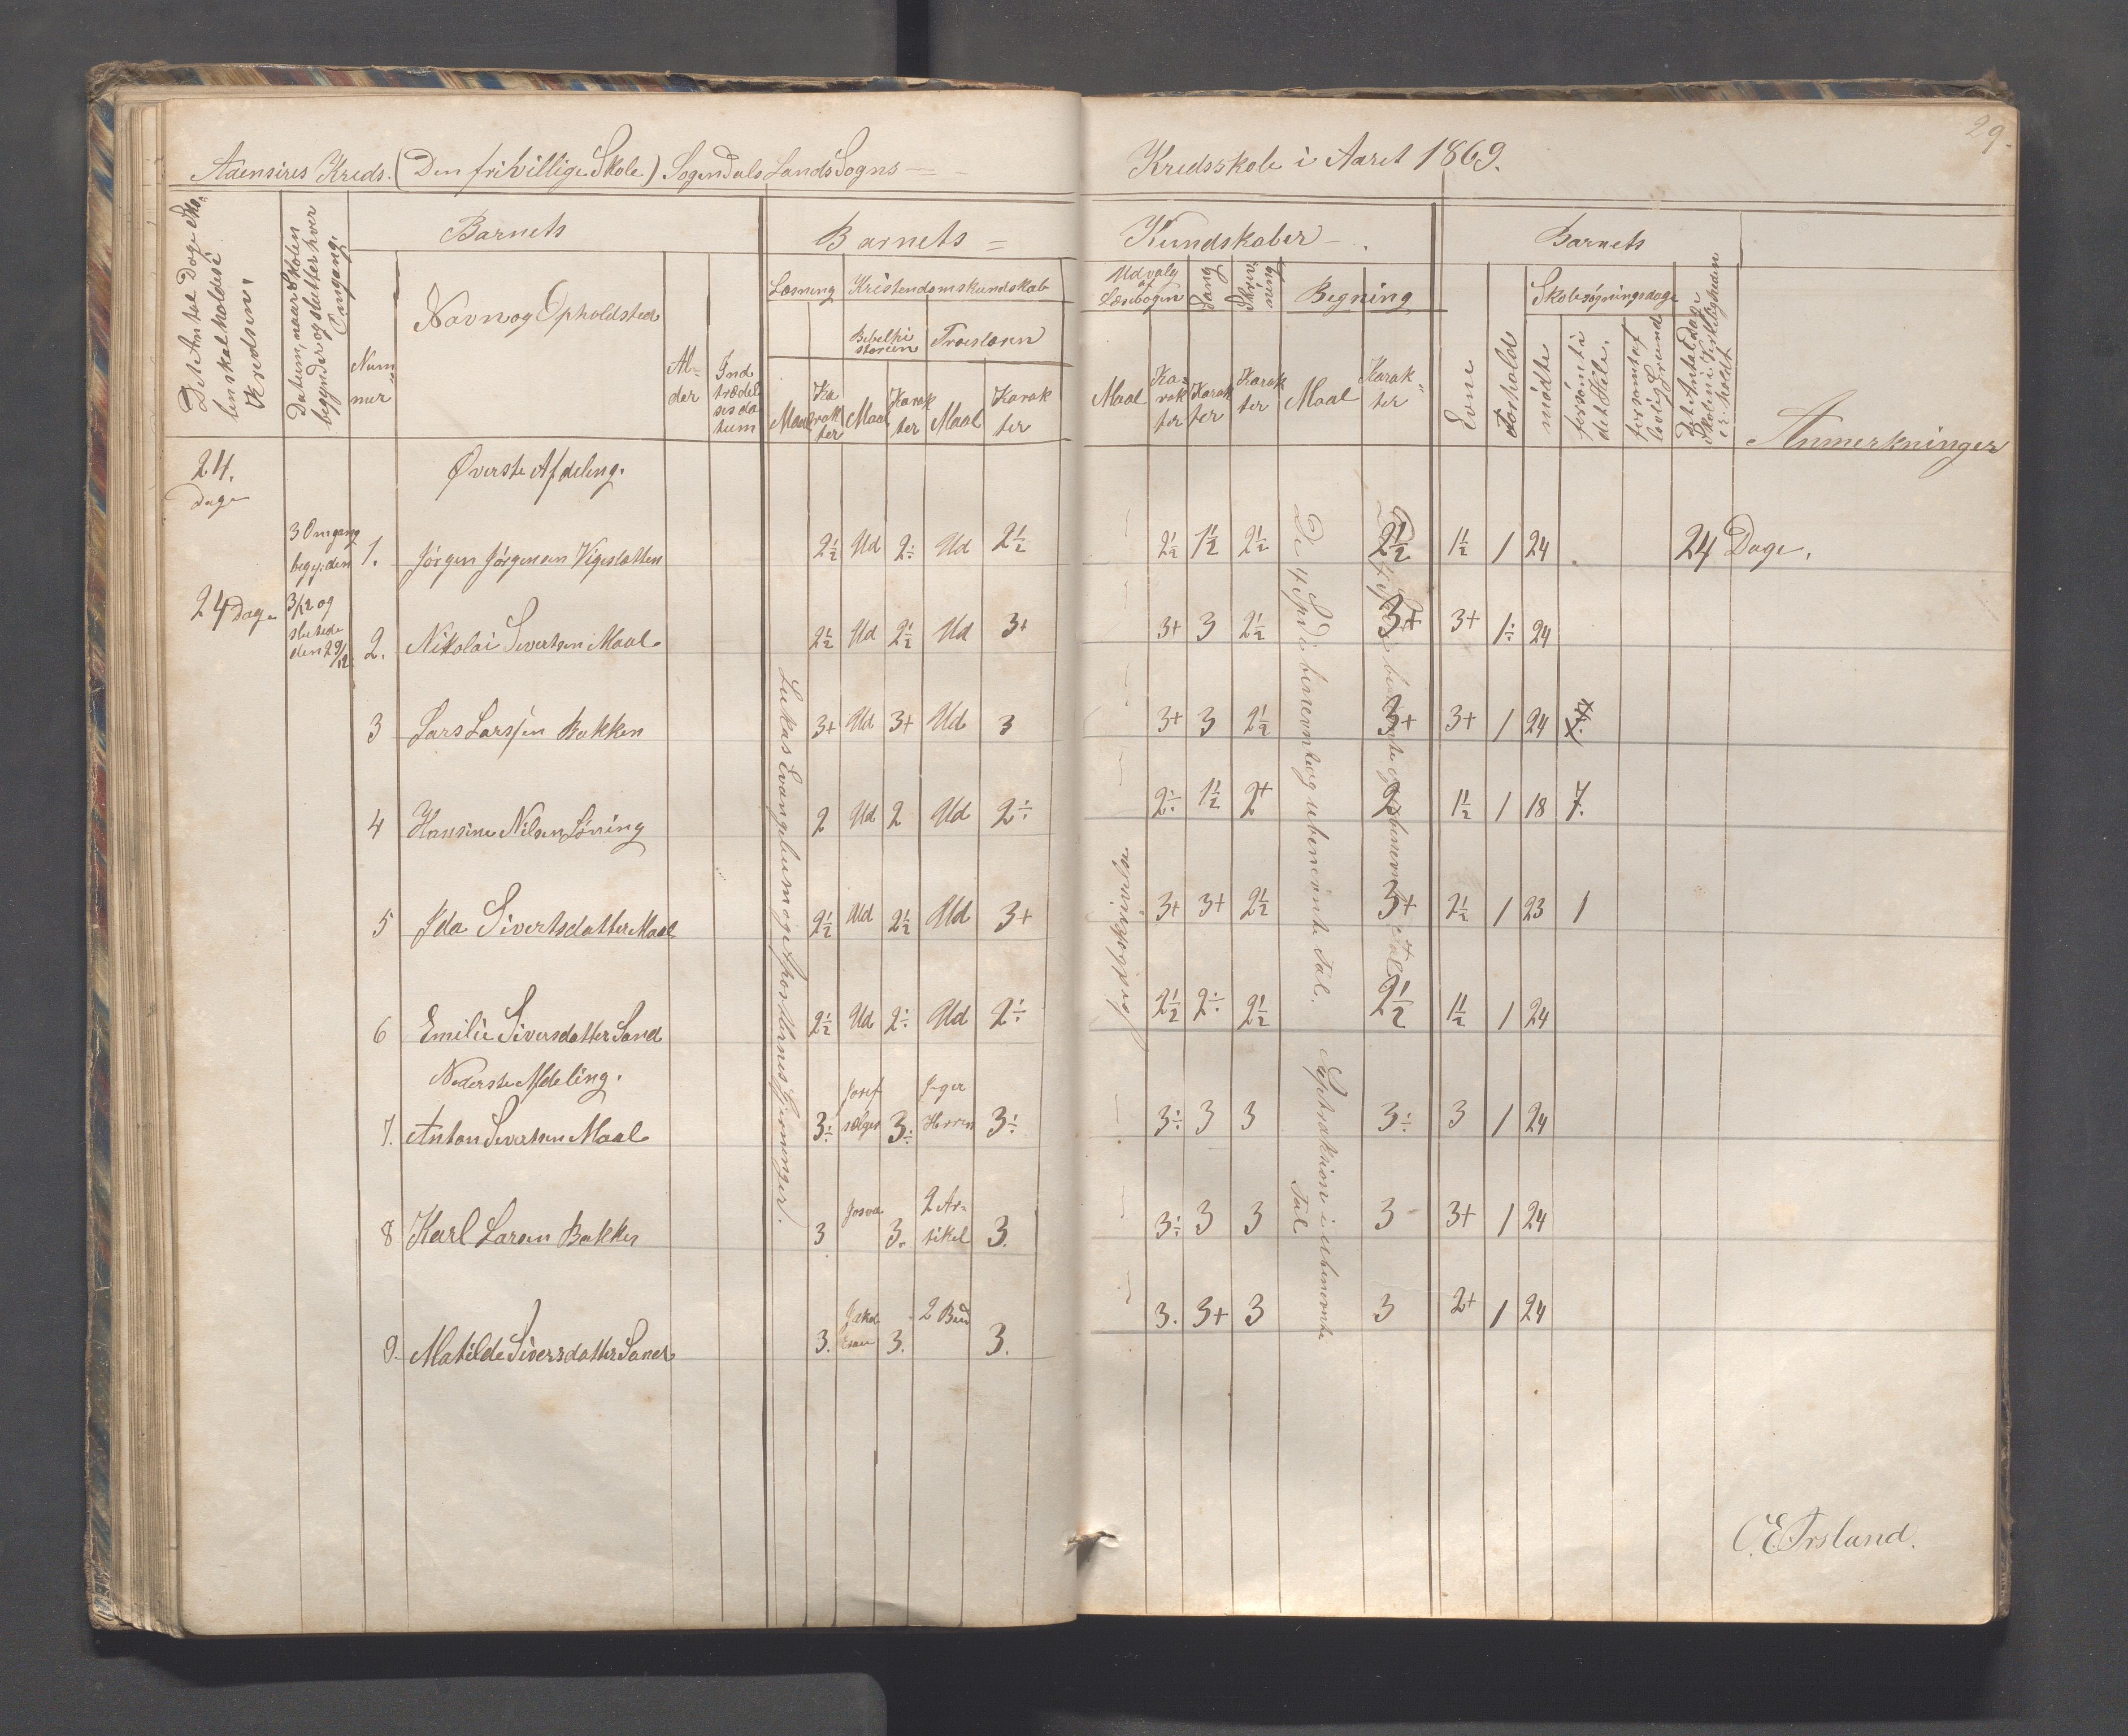 29.
Aaensires Kreds. (Den frivillige Skole) Sogndals Lands Sogns
Kredsskole i Aaret 1869.
Det Antal Dage Sko-
len skal holdes i
Kredsen.
Datum, naar Skolen
begynder og slutter hver
Omgang.
Barnets
Num
mer
Navn og Opholdsted
Al=
der
Ind
trædel
ses da
tum
Barnets =
Læsning
Kristendomskundskab
Bibelhi
storien
Troeslæren
Maal
Ka
rak
ter
Maal
Karak
ter
Maal
Karak
ter
Kundskaber
Udvalg
af
Læsebogen
Sang
Skriv-
ning
Regning
Maal
Ka=
rak
ter
Karak
ter
Karak
ter
Maal
Karak
ter
Barnets
Evne
Forholde
Skolesøgningsdage
mødte
forsømte i
det Hele.
forsømt af
lovlig Grund
Det Antal Dage
Skolen i Virkeligheden
er holdt
Anmerkninger
24.
Dage
Øverste Afdeling.
3 Omgang
begy: den
3/12 og
sluttede
den 29/12
24 Dage
1. Jørgen Jørgensen Vigeslætten 2½ Ud 2÷ Ud 2½ 2½ 1½ 2½ 2½ 1½ 1 24 24 Dage.
2. Nikolai Sivertsen Maal 2½ Ud 2½ Ud 3+ 3+ 3 2½ 3+ 3+ 1÷ 24
3 Lars Larssen Bakken 3+ Ud 3+ Ud 3 3+ 3 2½ 3+ 3+ 1 24
4 Hansine Nilsen Løvning 2 Ud 2 Ud 2÷ 2÷ 1½ 2+ 2 1½ 1 18 7.
5 Ida Sivertsdatter Maal 2½ Ud 2½ Ud 3+ 3+ 3+ 2½ 3+ 2½ 1 23 1
6 Emilie Siversdatter Sand 2½ Ud 2÷ Ud 2÷ 2½ 2÷ 2½ 2½ 1½ 1 24
Nederste Afdeling.
7. Anton Sivertsen Maal 3÷ Josef sælges 3÷ Jeger Herren 3÷ 3÷ 3 3 3÷ 3 1 24
8 Karl Larsen Bakken 3 Josva 3. 2 Ar-tikel 3. 3÷ 3 3 3 3+ 1 24
9. Matilde Siversdatter Sand 3. Jakob Esau 3. 2 Bud 3. 3. 3+ 3 3 2+ 1 24
Lukas Evangelium og Apostlenes Gjerninger.
Jordbeskrivelsen
De 4 Spe: i benevnte og ubenevnte Tal.
Suptraktion i ubenevnte
Tal
C. E. Årsland.